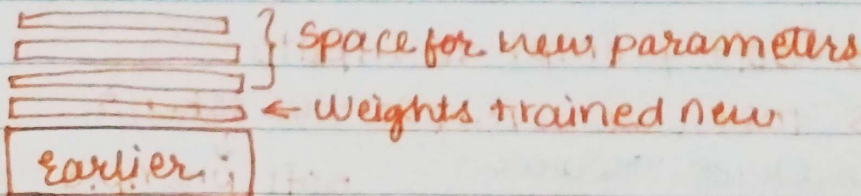 space for new parameters
← Weights trained new
Earlier :